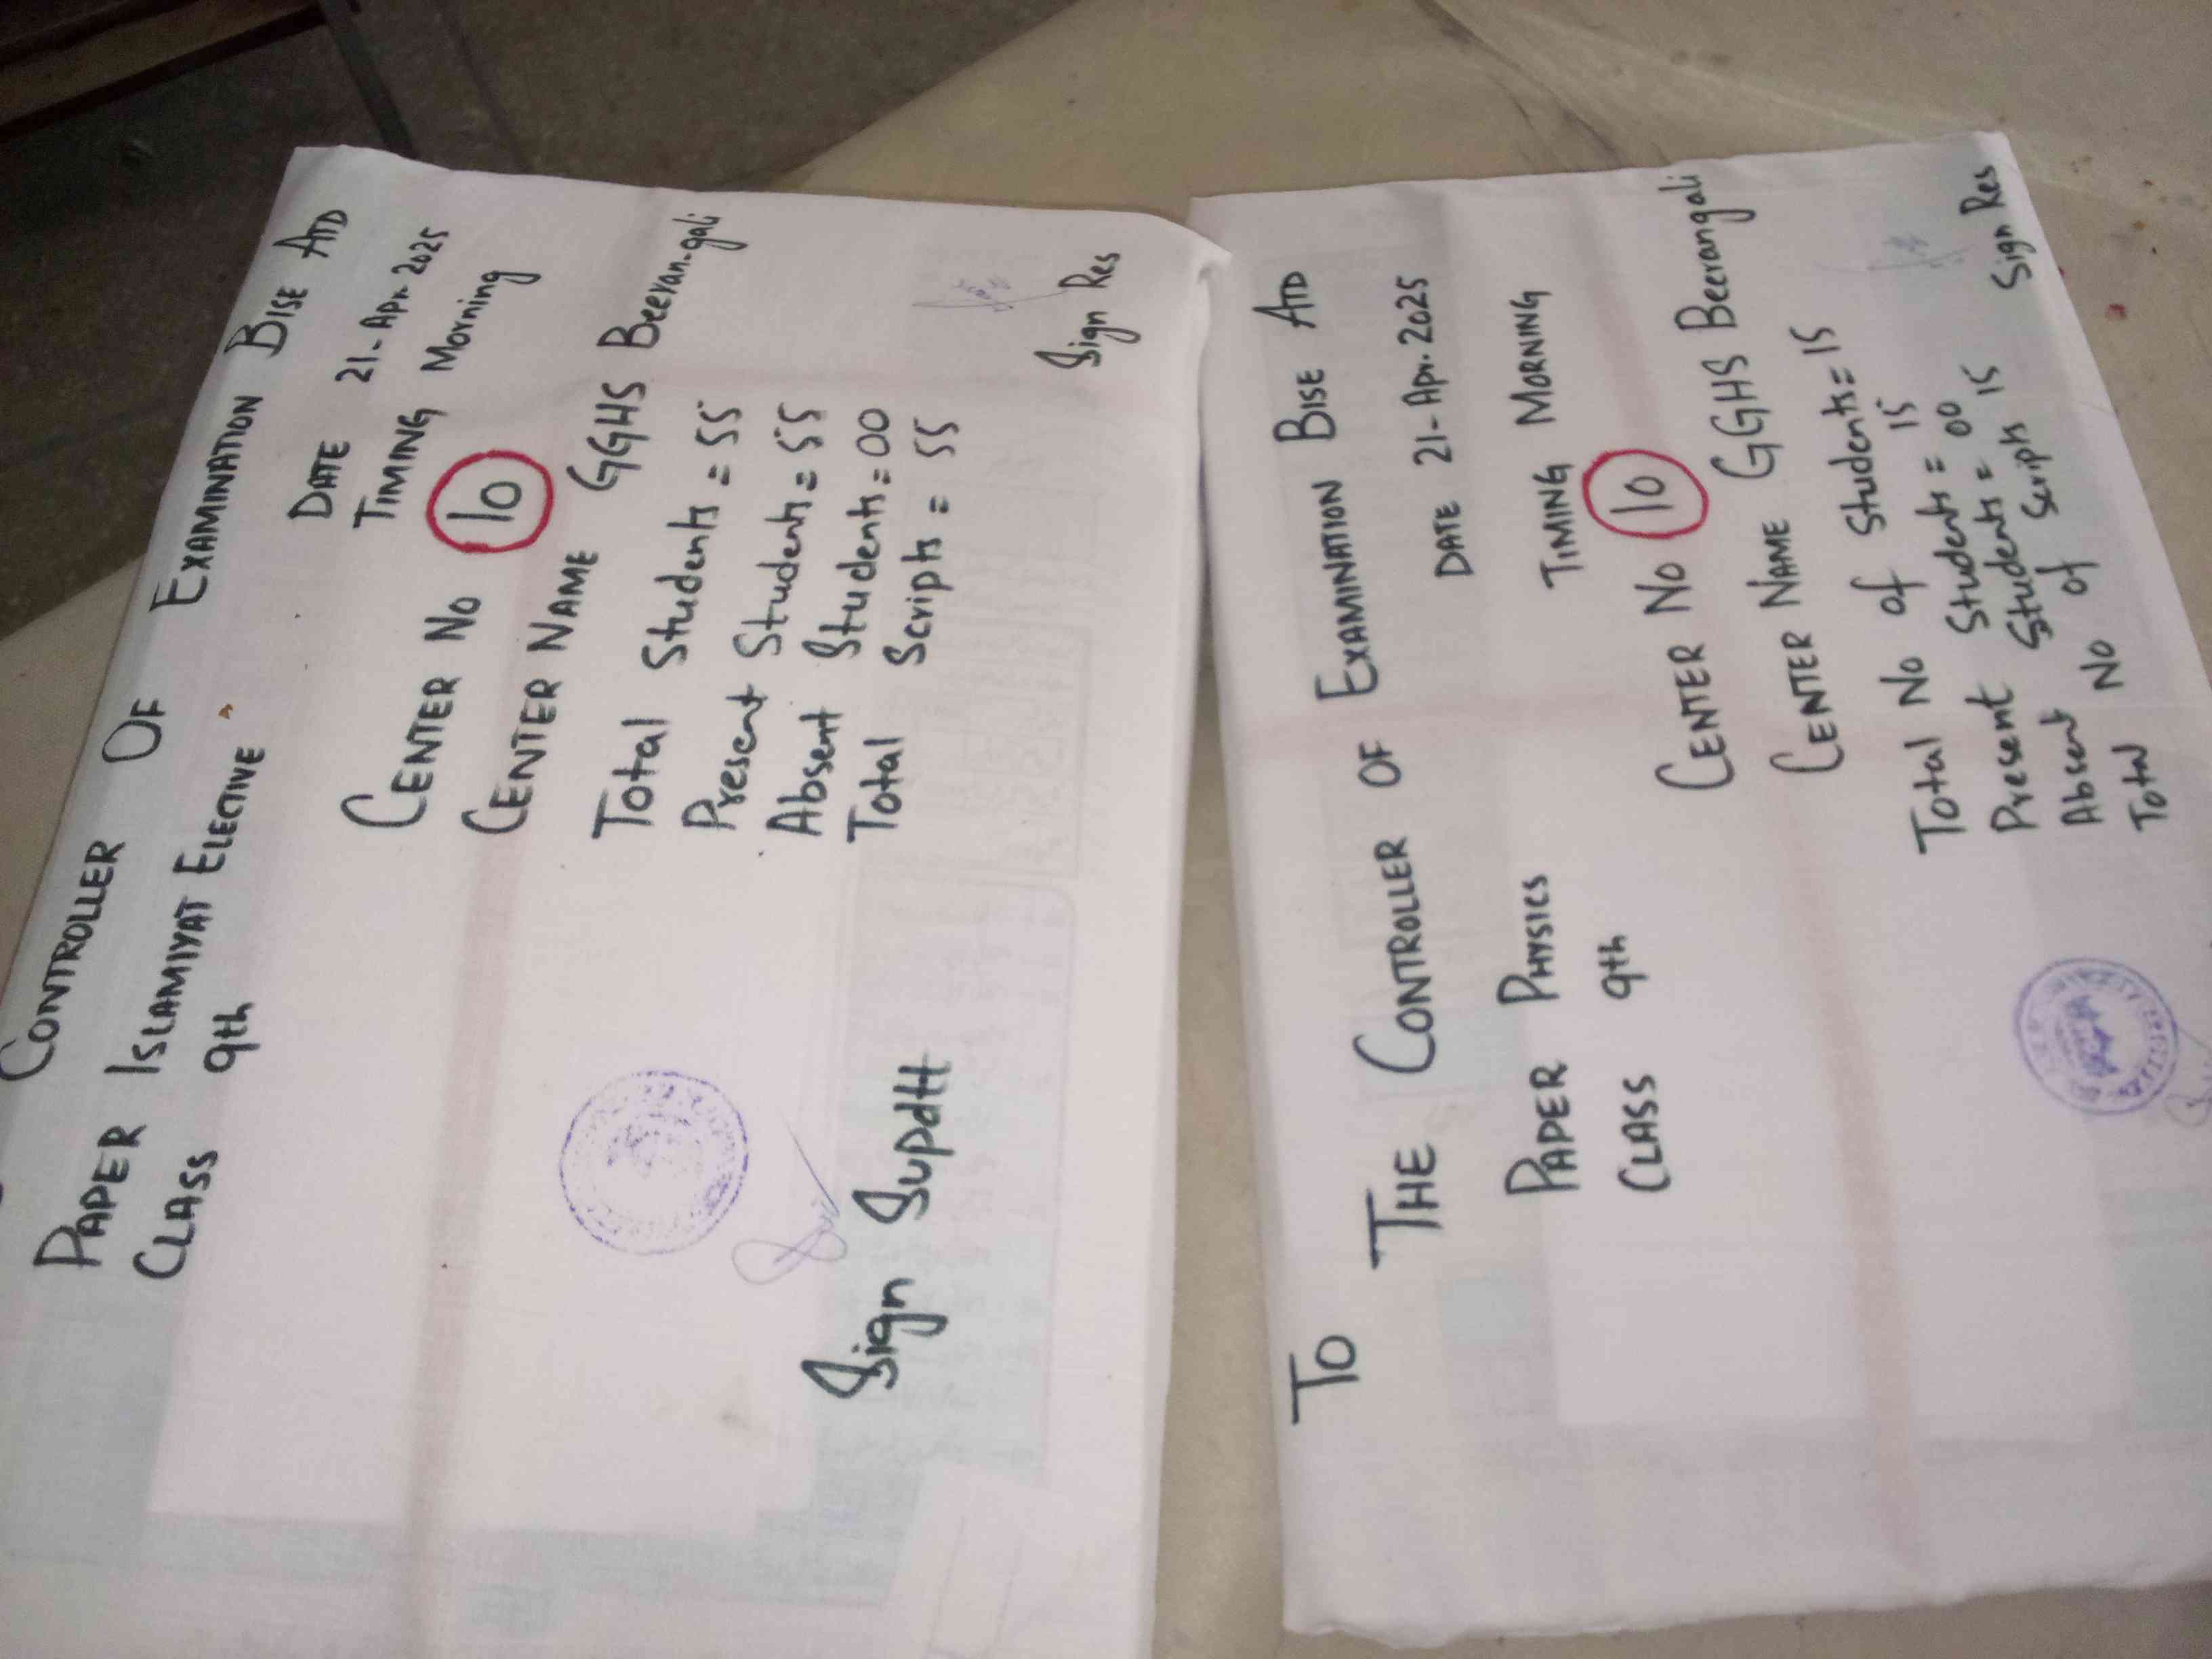 CONTROLLER OF EXAMINATION BISE ATD
PAPER ISLAMIYAT ELECTIVE
CLASS 9th
DATE 21-Apr-2025
TIMING Morning
CENTER No 10
CENTER NAME GGHS Beeran-gali
Total Students = 55
Present Students = 55
Absent Students = 00
Total Scripts = 55
Sign Supdtt
Sign Res
TO
THE CONTROLLER OF EXAMINATION BISE ATD
PAPER PHYSICS
CLASS 9th
DATE 21-Apr-2025
TIMING MORNING
CENTER No 10
CENTER NAME GGHS Beerangali
Total No of Students = 15
Present Students = 15
Absent Students = 00
Total No of Scripts 15
Sign Res